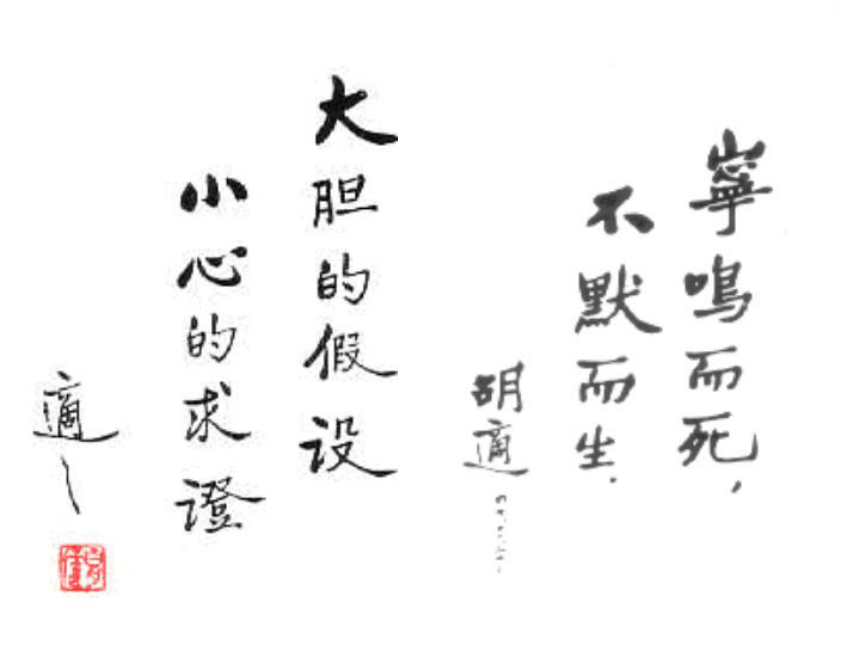 寧鳴而死，
不默而生．
胡適
大胆的假设
小心的求證
適